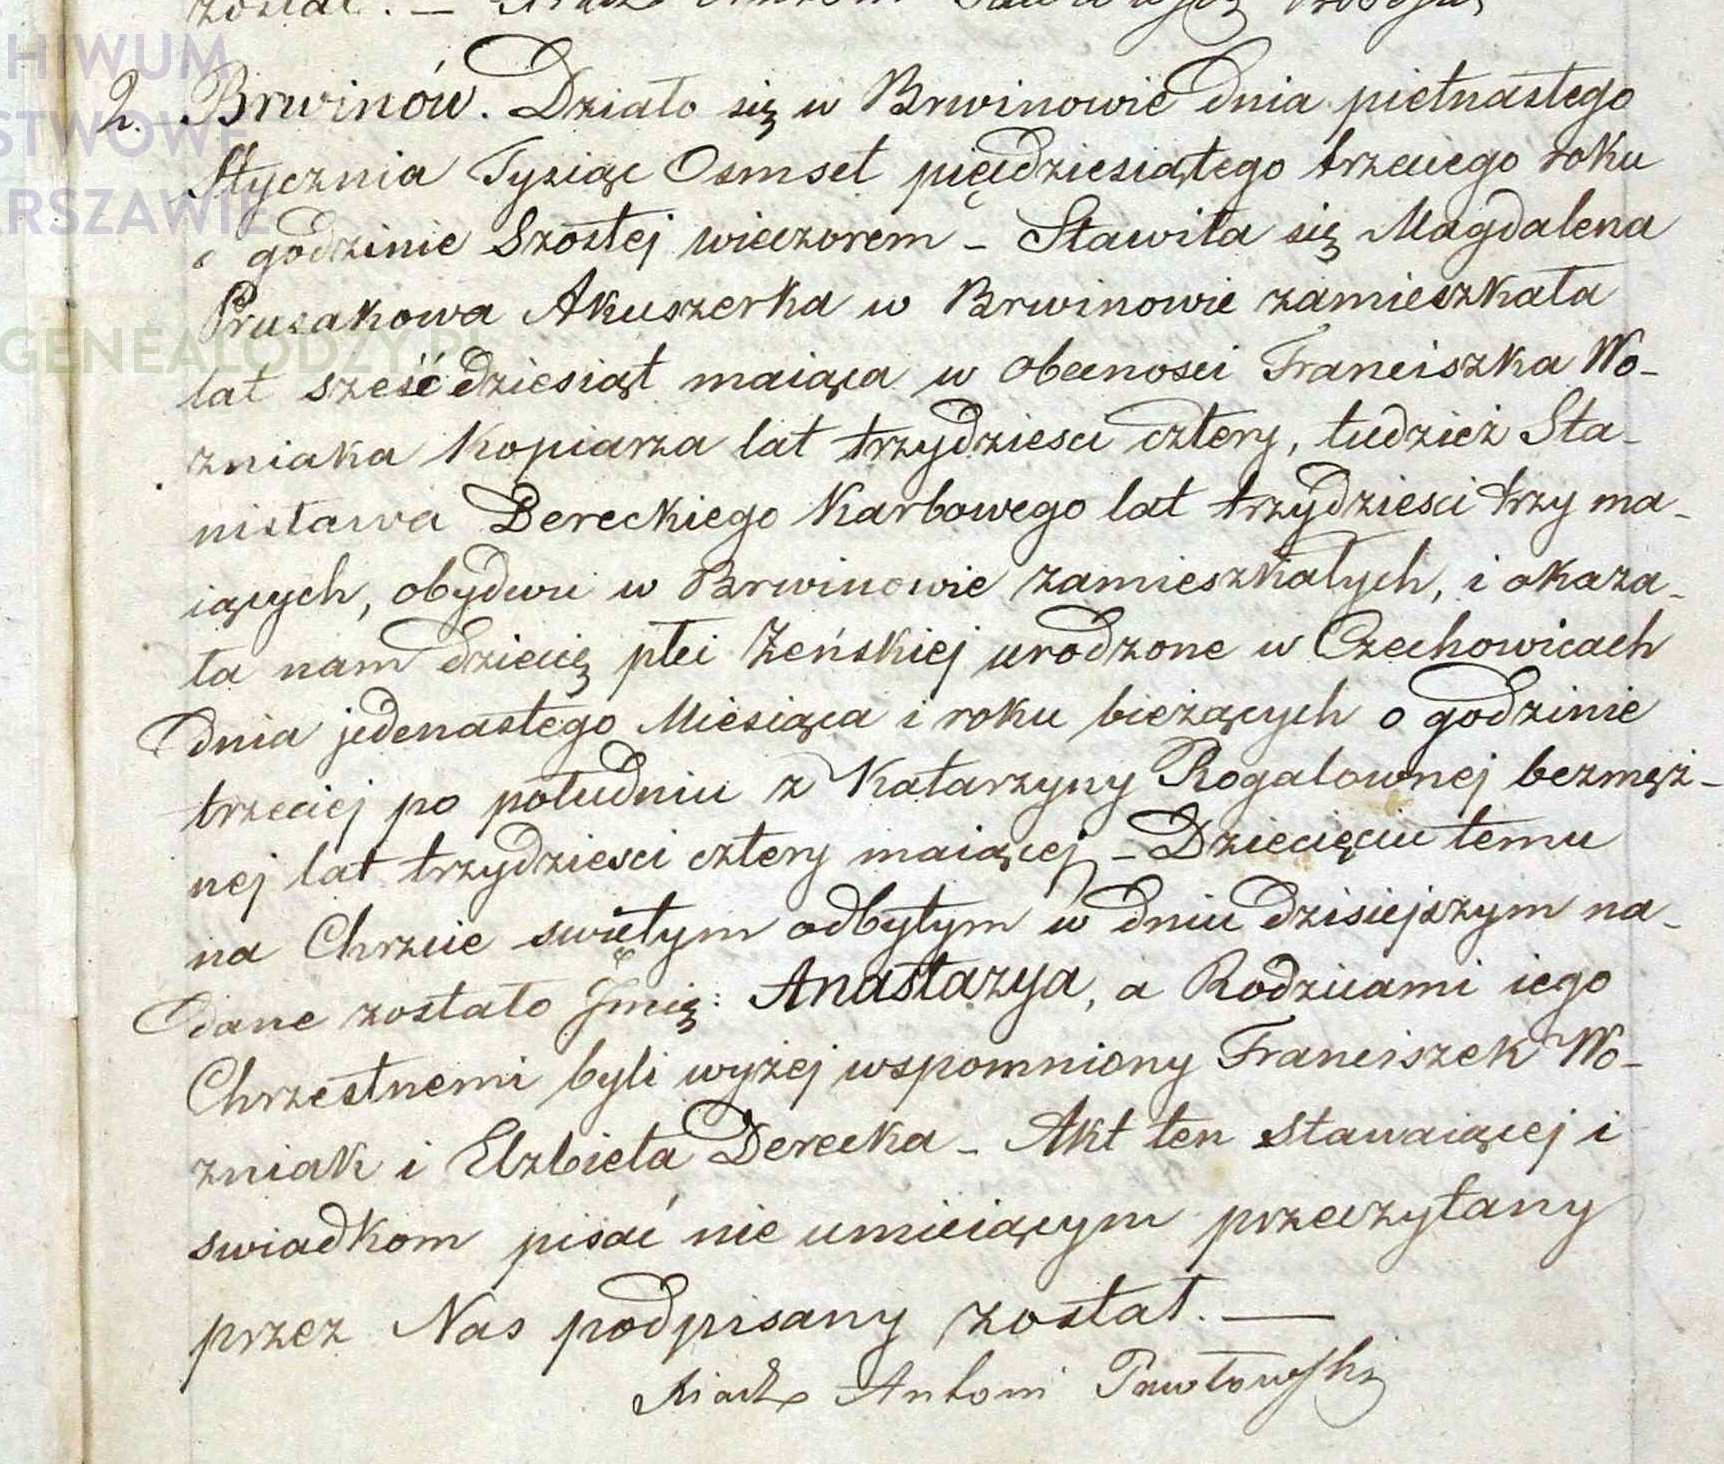 2. Brwinów. Działo się w Brwinowie dnia pietnastego
Stycznia Tysiąc Osmset pięćdziesiątego trzeciego roku
o godzinie Szóstej wieczorem – Stawiła się Magdalena
Prusakowa Akuszerka w Brwinowie zamieszkała
lat sześćdziesiąt maiąca w obecnosci Franciszka Wo-
zniaka Kopiarza lat trzydziesci cztery, tudzież Sta-
nisława Dereckiego Karbowego lat trzydziesci trzy ma-
iących, obydwu w Brwinowie zamieszkałych, i okaza-
ła nam dziecię płci Żeńskiej urodzone w Czechowicach
dnia jedenastego Miesiąca i roku bieżących o godzinie
trzeciej po południu z Katarzyny Rogalownej bezmęż-
nej lat trzydziesci cztery maiącej – Dziecięciu temu
na Chrzcie swiętym odbytym w dniu dzisiejszym na-
dane zostało Jmię: Anastazya, a Rodzicami iego
Chrzestnemi byli wyżej wspomniony Franciszek Wo-
zniak i Elzbieta Derecka – Akt ten stawaiącej i
swiadkom pisać nie umieiącym przeczytany
przez Nas podpisany został. —
Xiądz Antoni Pawłowski
HIWUM
STWOWE
RSZAWIE
GENEALODZY.P